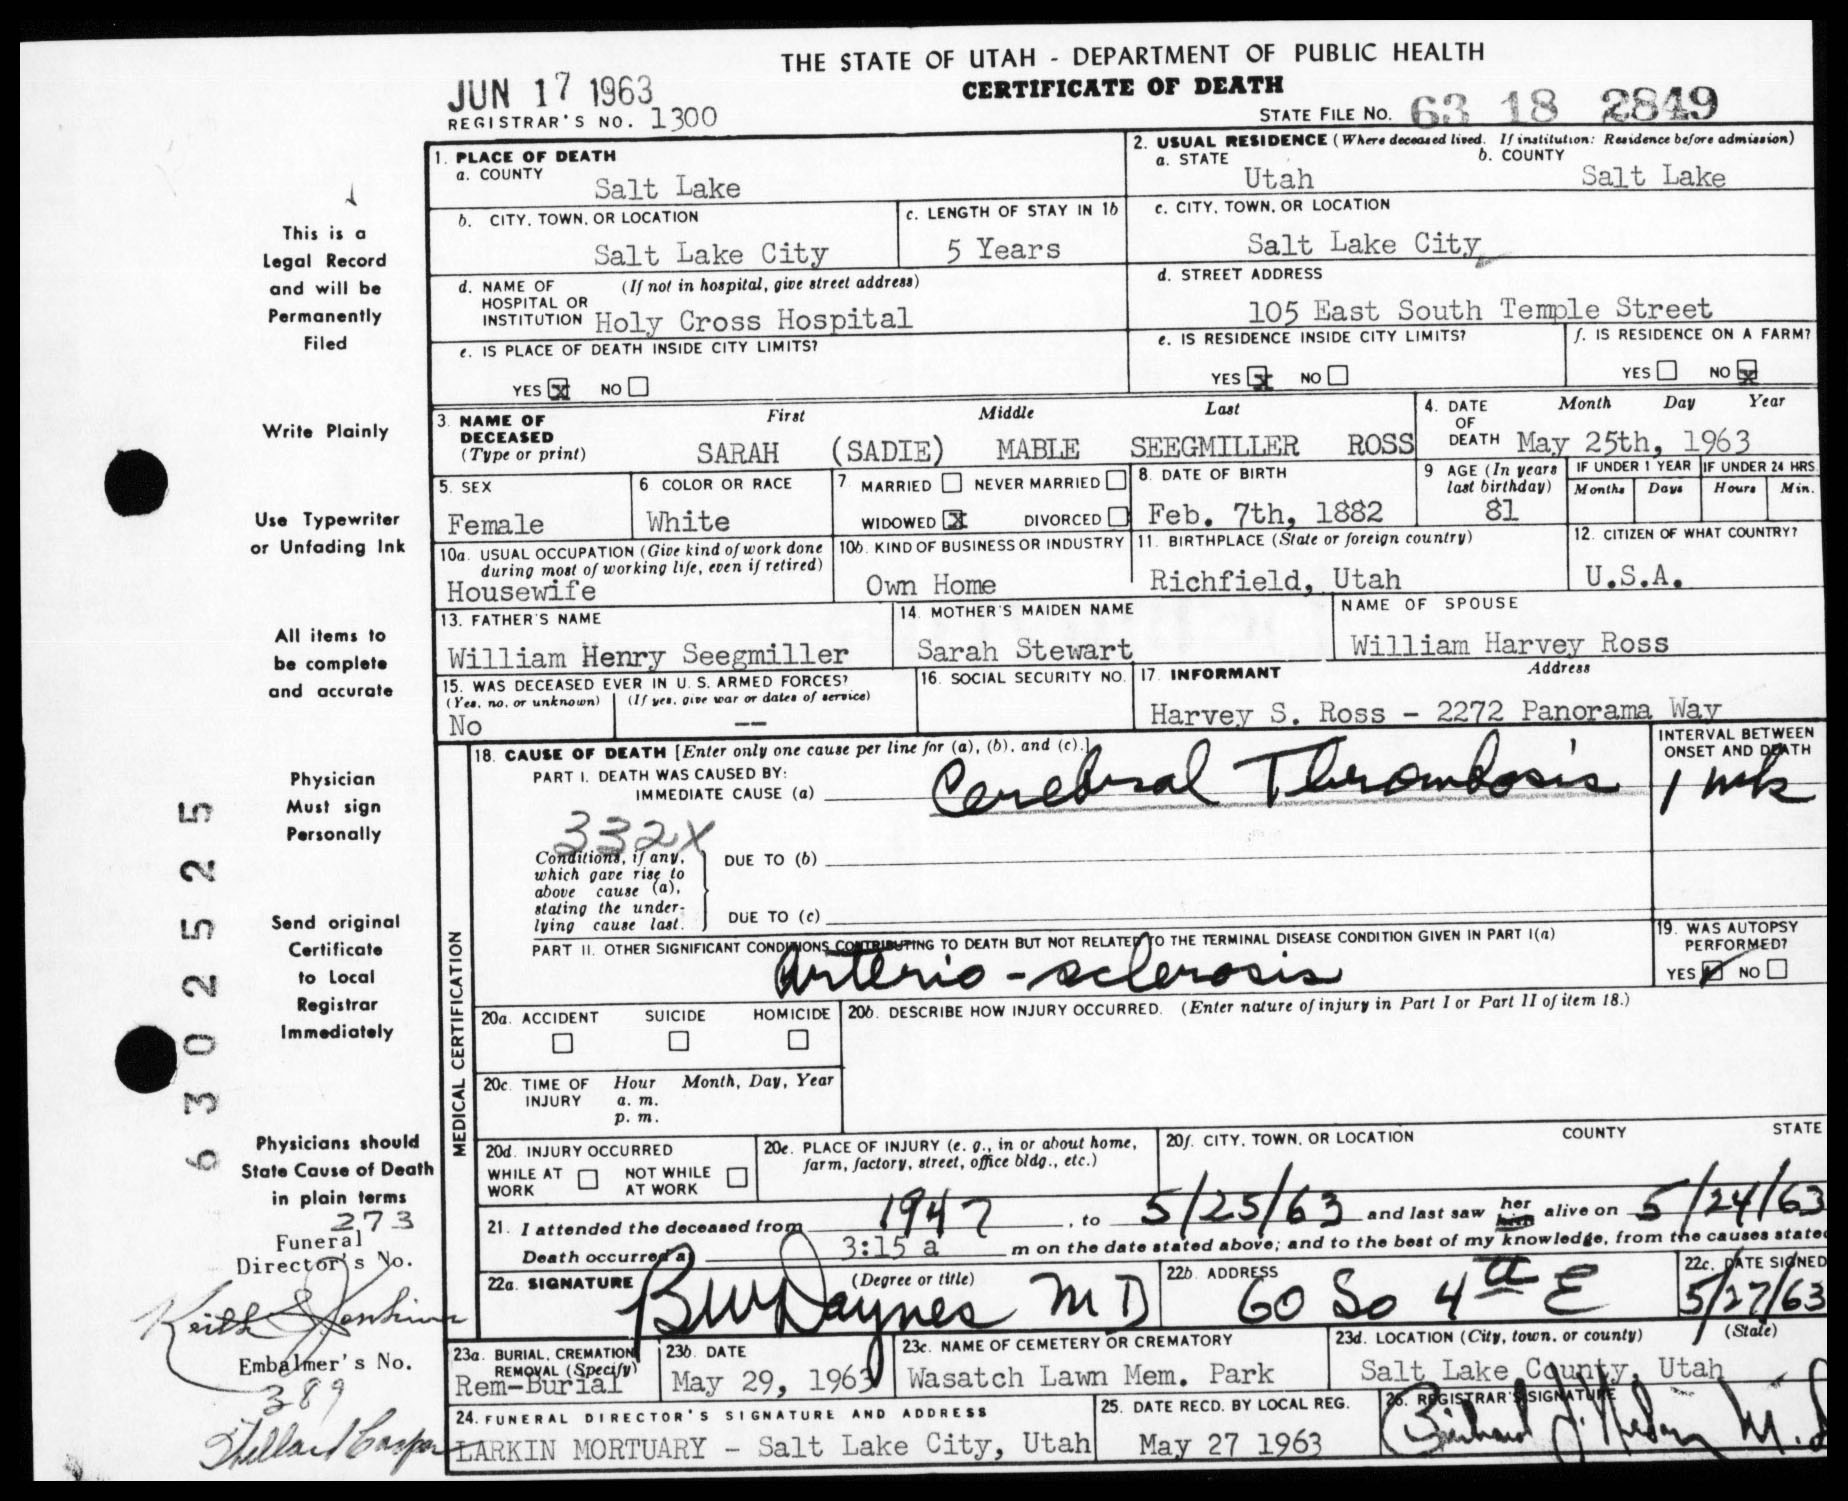 THE STATE OF UTAH - DEPARTMENT OF PUBLIC HEALTH
CERTIFICATE OF DEATH
JUN 17 1963
REGISTRAR'S NO. 1300
STATE FILE NO. 63 18 2849
1. PLACE OF DEATH
a. COUNTY
Salt Lake
2. USUAL RESIDENCE (Where deceased lived. If institution: Residence before admission)
a. STATE
Utah
b. COUNTY
Salt Lake
b. CITY, TOWN, OR LOCATION
Salt Lake City
c. LENGTH OF STAY IN 1b
5 Years
c. CITY, TOWN, OR LOCATION
Salt Lake City
d. NAME OF (If not in hospital, give street address)
HOSPITAL OR
INSTITUTION Holy Cross Hospital
d. STREET ADDRESS
105 East South Temple Street
e. IS PLACE OF DEATH INSIDE CITY LIMITS?
YES X NO
e. IS RESIDENCE INSIDE CITY LIMITS?
YES X NO
f. IS RESIDENCE ON A FARM?
YES NO X
3. NAME OF DECEASED (Type or print)
First Middle Last
SARAH (SADIE) MABLE SEEGMILLER ROSS
4. DATE OF DEATH
Month Day Year
May 25th, 1963
5. SEX
Female
6 COLOR OR RACE
White
7 MARRIED NEVER MARRIED
WIDOWED X DIVORCED
8. DATE OF BIRTH
Feb. 7th, 1882
9 AGE (In years last birthday)
81
IF UNDER 1 YEAR
Months Days
IF UNDER 24 HRS.
Hours Min.
10a. USUAL OCCUPATION (Give kind of work done
during most of working life, even if retired)
Housewife
10b. KIND OF BUSINESS OR INDUSTRY
Own Home
11. BIRTHPLACE (State or foreign country)
Richfield, Utah
12. CITIZEN OF WHAT COUNTRY?
U.S.A.
13. FATHER'S NAME
William Henry Seegmiller
14. MOTHER'S MAIDEN NAME
Sarah Stewart
NAME OF SPOUSE
William Harvey Ross
15. WAS DECEASED EVER IN U.S. ARMED FORCES?
(Yes, no, or unknown) (If yes, give war or dates of service)
No --
16. SOCIAL SECURITY NO.
17. INFORMANT Address
Harvey S. Ross - 2272 Panorama Way
18. CAUSE OF DEATH [Enter only one cause per line for (a), (b), and (c).]
PART I. DEATH WAS CAUSED BY:
IMMEDIATE CAUSE (a) Cerebral Thrombosis
INTERVAL BETWEEN
ONSET AND DEATH
1 wk
332X
Conditions, if any,
which gave rise to
above cause (a),
stating the under-
lying cause last.
DUE TO (b)
DUE TO (c)
PART II. OTHER SIGNIFICANT CONDITIONS CONTRIBUTING TO DEATH BUT NOT RELATED TO THE TERMINAL DISEASE CONDITION GIVEN IN PART I(a)
Arterio-sclerosis
19. WAS AUTOPSY
PERFORMED?
YES NO
MEDICAL CERTIFICATION
20a. ACCIDENT SUICIDE HOMICIDE
20b. DESCRIBE HOW INJURY OCCURRED. (Enter nature of injury in Part I or Part II of item 18.)
20c. TIME OF INJURY
Hour Month, Day, Year
a. m.
p. m.
20d. INJURY OCCURRED
WHILE AT WORK NOT WHILE AT WORK
20e. PLACE OF INJURY (e. g., in or about home,
farm, factory, street, office bldg., etc.)
20f. CITY, TOWN, OR LOCATION COUNTY STATE
21. I attended the deceased from 1947, to 5/25/63 and last saw her him alive on 5/24/63
Death occurred at 3:15 a m on the date stated above; and to the best of my knowledge, from the causes stated
22a. SIGNATURE (Degree or title)
BW Daynes MD
22b. ADDRESS
60 So 4th E
22c. DATE SIGNED
5/27/63
23a. BURIAL, CREMATION,
REMOVAL (Specify)
Rem-Burial
23b. DATE
May 29, 1963
23c. NAME OF CEMETERY OR CREMATORY
Wasatch Lawn Mem. Park
23d. LOCATION (City, town, or county) (State)
Salt Lake County, Utah
24. FUNERAL DIRECTOR'S SIGNATURE AND ADDRESS
LARKIN MORTUARY - Salt Lake City, Utah
25. DATE RECD. BY LOCAL REG.
May 27 1963
26. REGISTRAR'S SIGNATURE
This is a
Legal Record
and will be
Permanently
Filed
Write Plainly
Use Typewriter
or Unfading Ink
All items to
be complete
and accurate
Physician
Must sign
Personally
Send original
Certificate
to Local
Registrar
Immediately
Physicians should
State Cause of Death
in plain terms
273
Funeral
Director's No.
Keith
Embalmer's No.
389
630252525